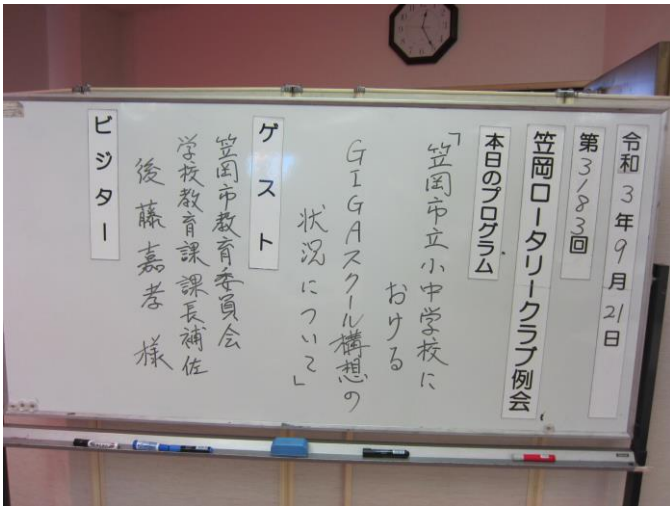 令和3年9月21日
第3183回
笠岡ロータリークラブ例会
本日のプログラム
「笠岡市立小中学校に
おける
GIGAスクール構想の
状況について」
ゲスト
笠岡市教育委員会
学校教育課課長補佐
後藤嘉孝様
ビジター